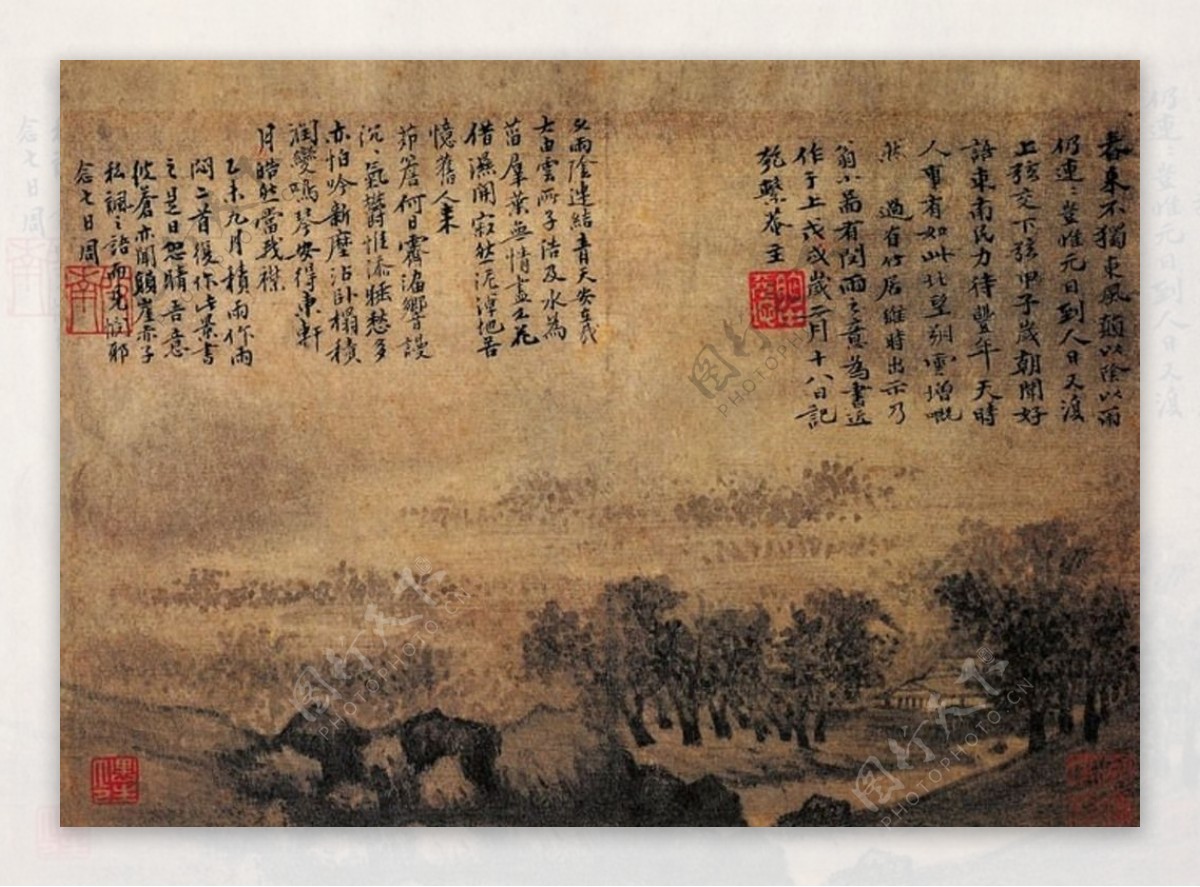 春來不獨東風顛以陰以雨
仍連〻豈惟元日到人日又復
上弦交下弦甲子歲朝聞好
語東南民力待豐年天時
人事有如此北望朔雲增嘅
然　過有竹居維時出示乃
翁小畵有閔雨之意為書近
作于上戊戌歲二月十八日記
乾
菴主
久雨陰連結青天安在哉
大田雲所子活及水為
菑羣葉無情盡不花
借濕開寂然泥淖地苦
憶舊人來
茆簷何日霽滷響謾
沉〻氣鬱惟添睡愁多
亦怕吟新麈沾卧榻積
潤變鳴琴安得東軒
月皓然當我襟
乙未九月積雨作雨
悶二首復作此景書
之是日忽晴吾意
彼蒼亦聞顛崖赤子
私諷之語而見憐耶
念七日周
图行天下
PHOTOPHOTO.CN